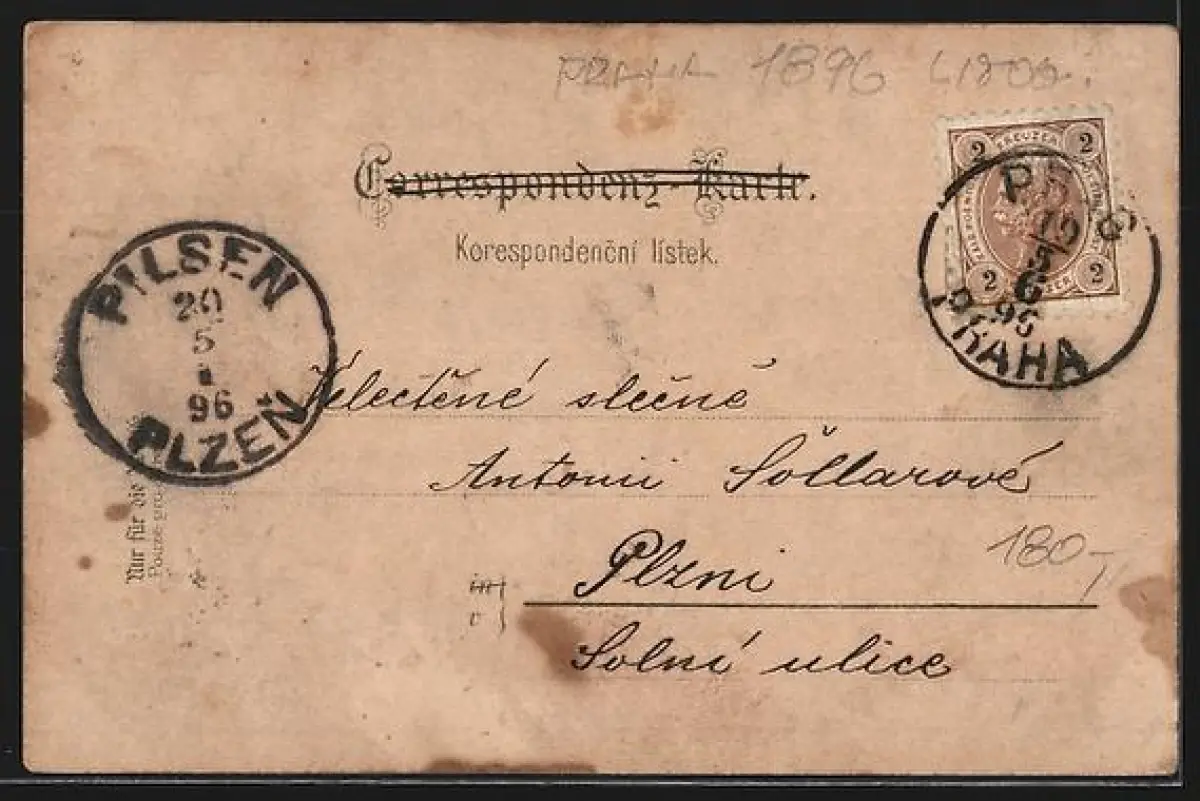 1896
Correspondenz-Karte.
Korespondenční lístek.
2 KREUZER 2
2 2
PRAG
19
5
6
96
PRAHA
PILSEN
20
5
1
96
PLZEŇ
Velectěné slečně
Antonii Šollarové
Plzni
in
v
Solní ulice
180,-
Nur für die
Pouze pro